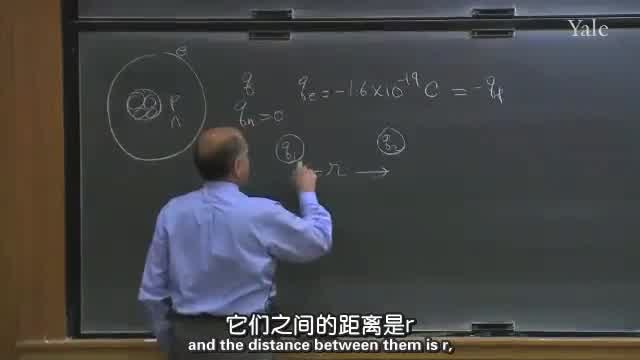 Yale
e
q
P
n
qₙ = 0
qₑ = -1.6 x 10⁻¹⁹ C = -qₚ
q₁
q₂
← r →
它们之间的距离是r
and the distance between them is r,